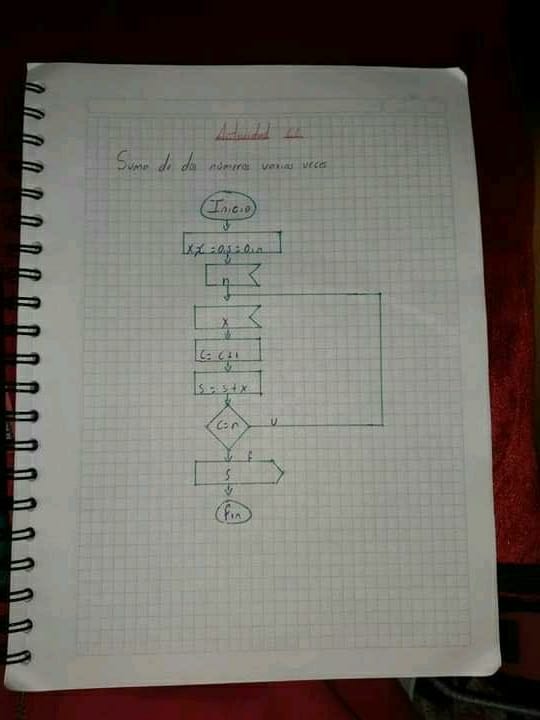 Actividad
Suma de dos números varias veces
Inicio
n
x
C = C+1
S = S+X
C=n
V
F
S
fin